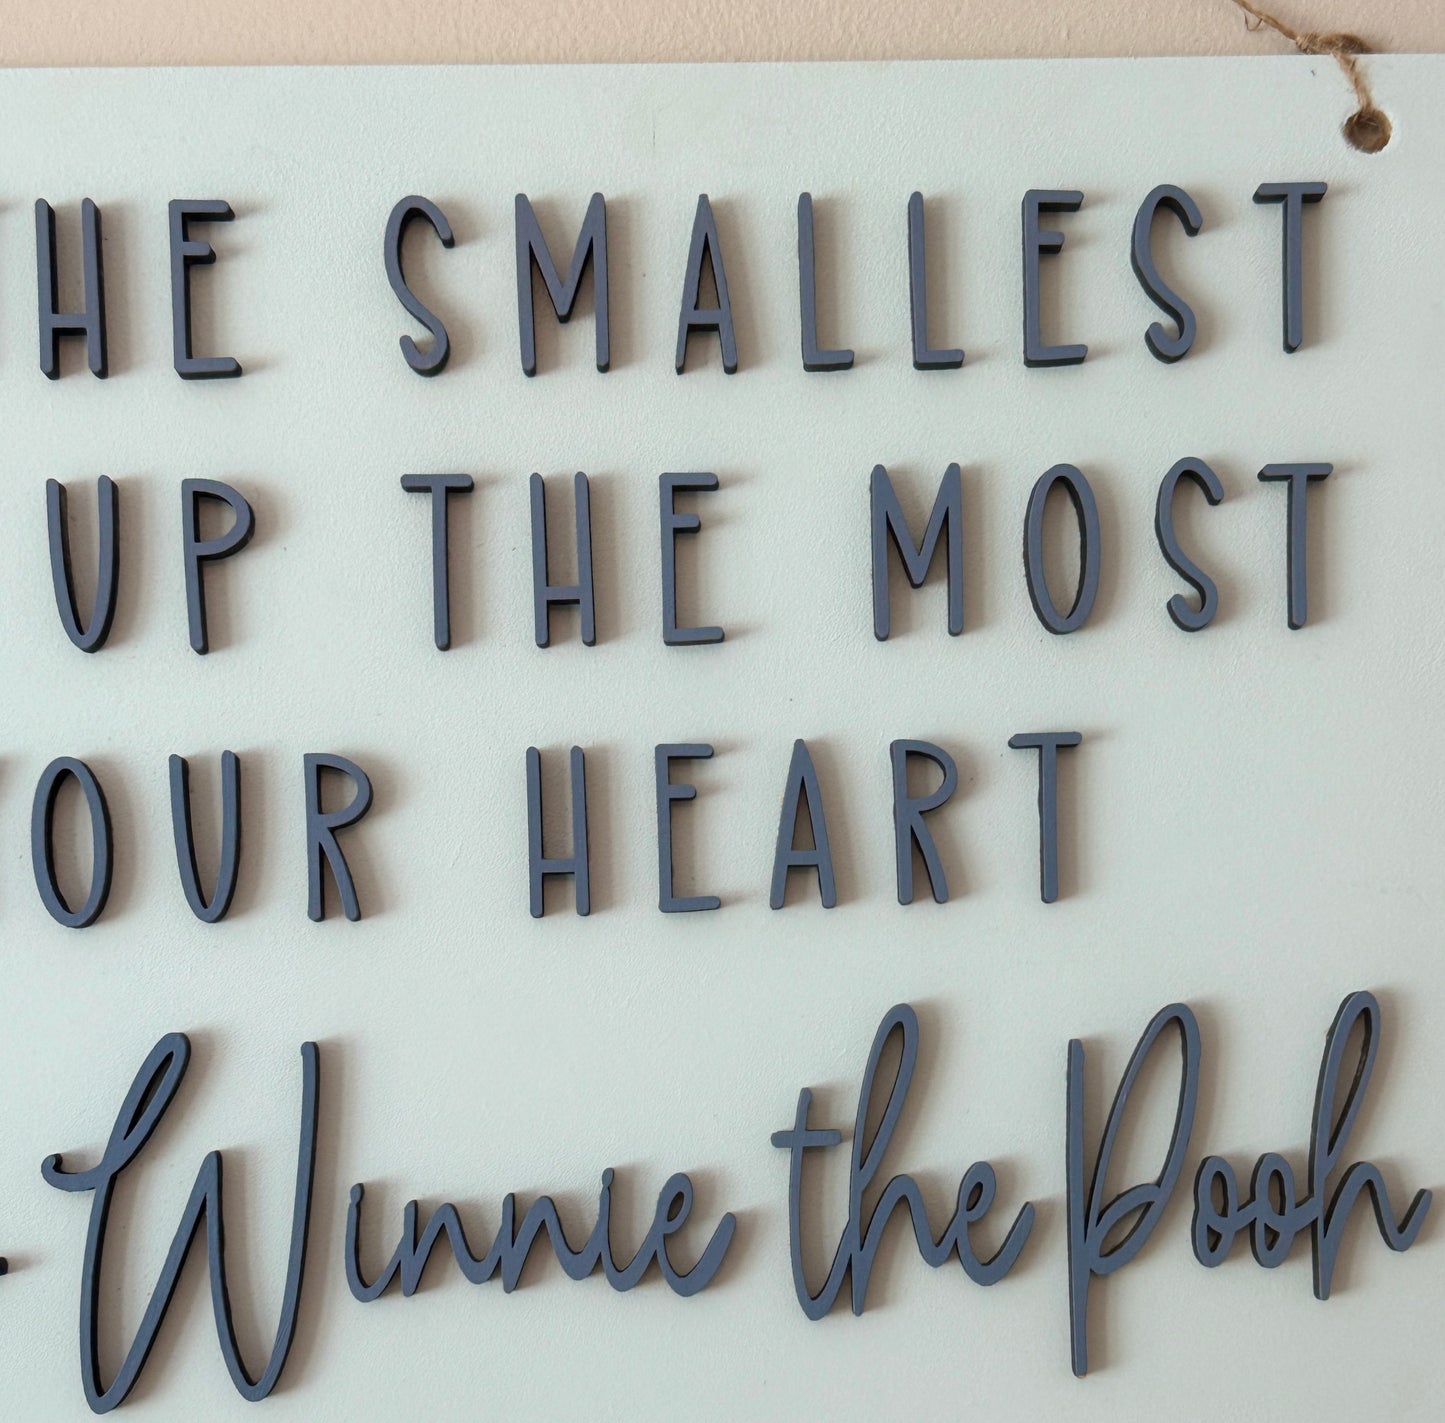 THE SMALLEST
UP THE MOST
YOUR HEART
- Winnie the Pooh